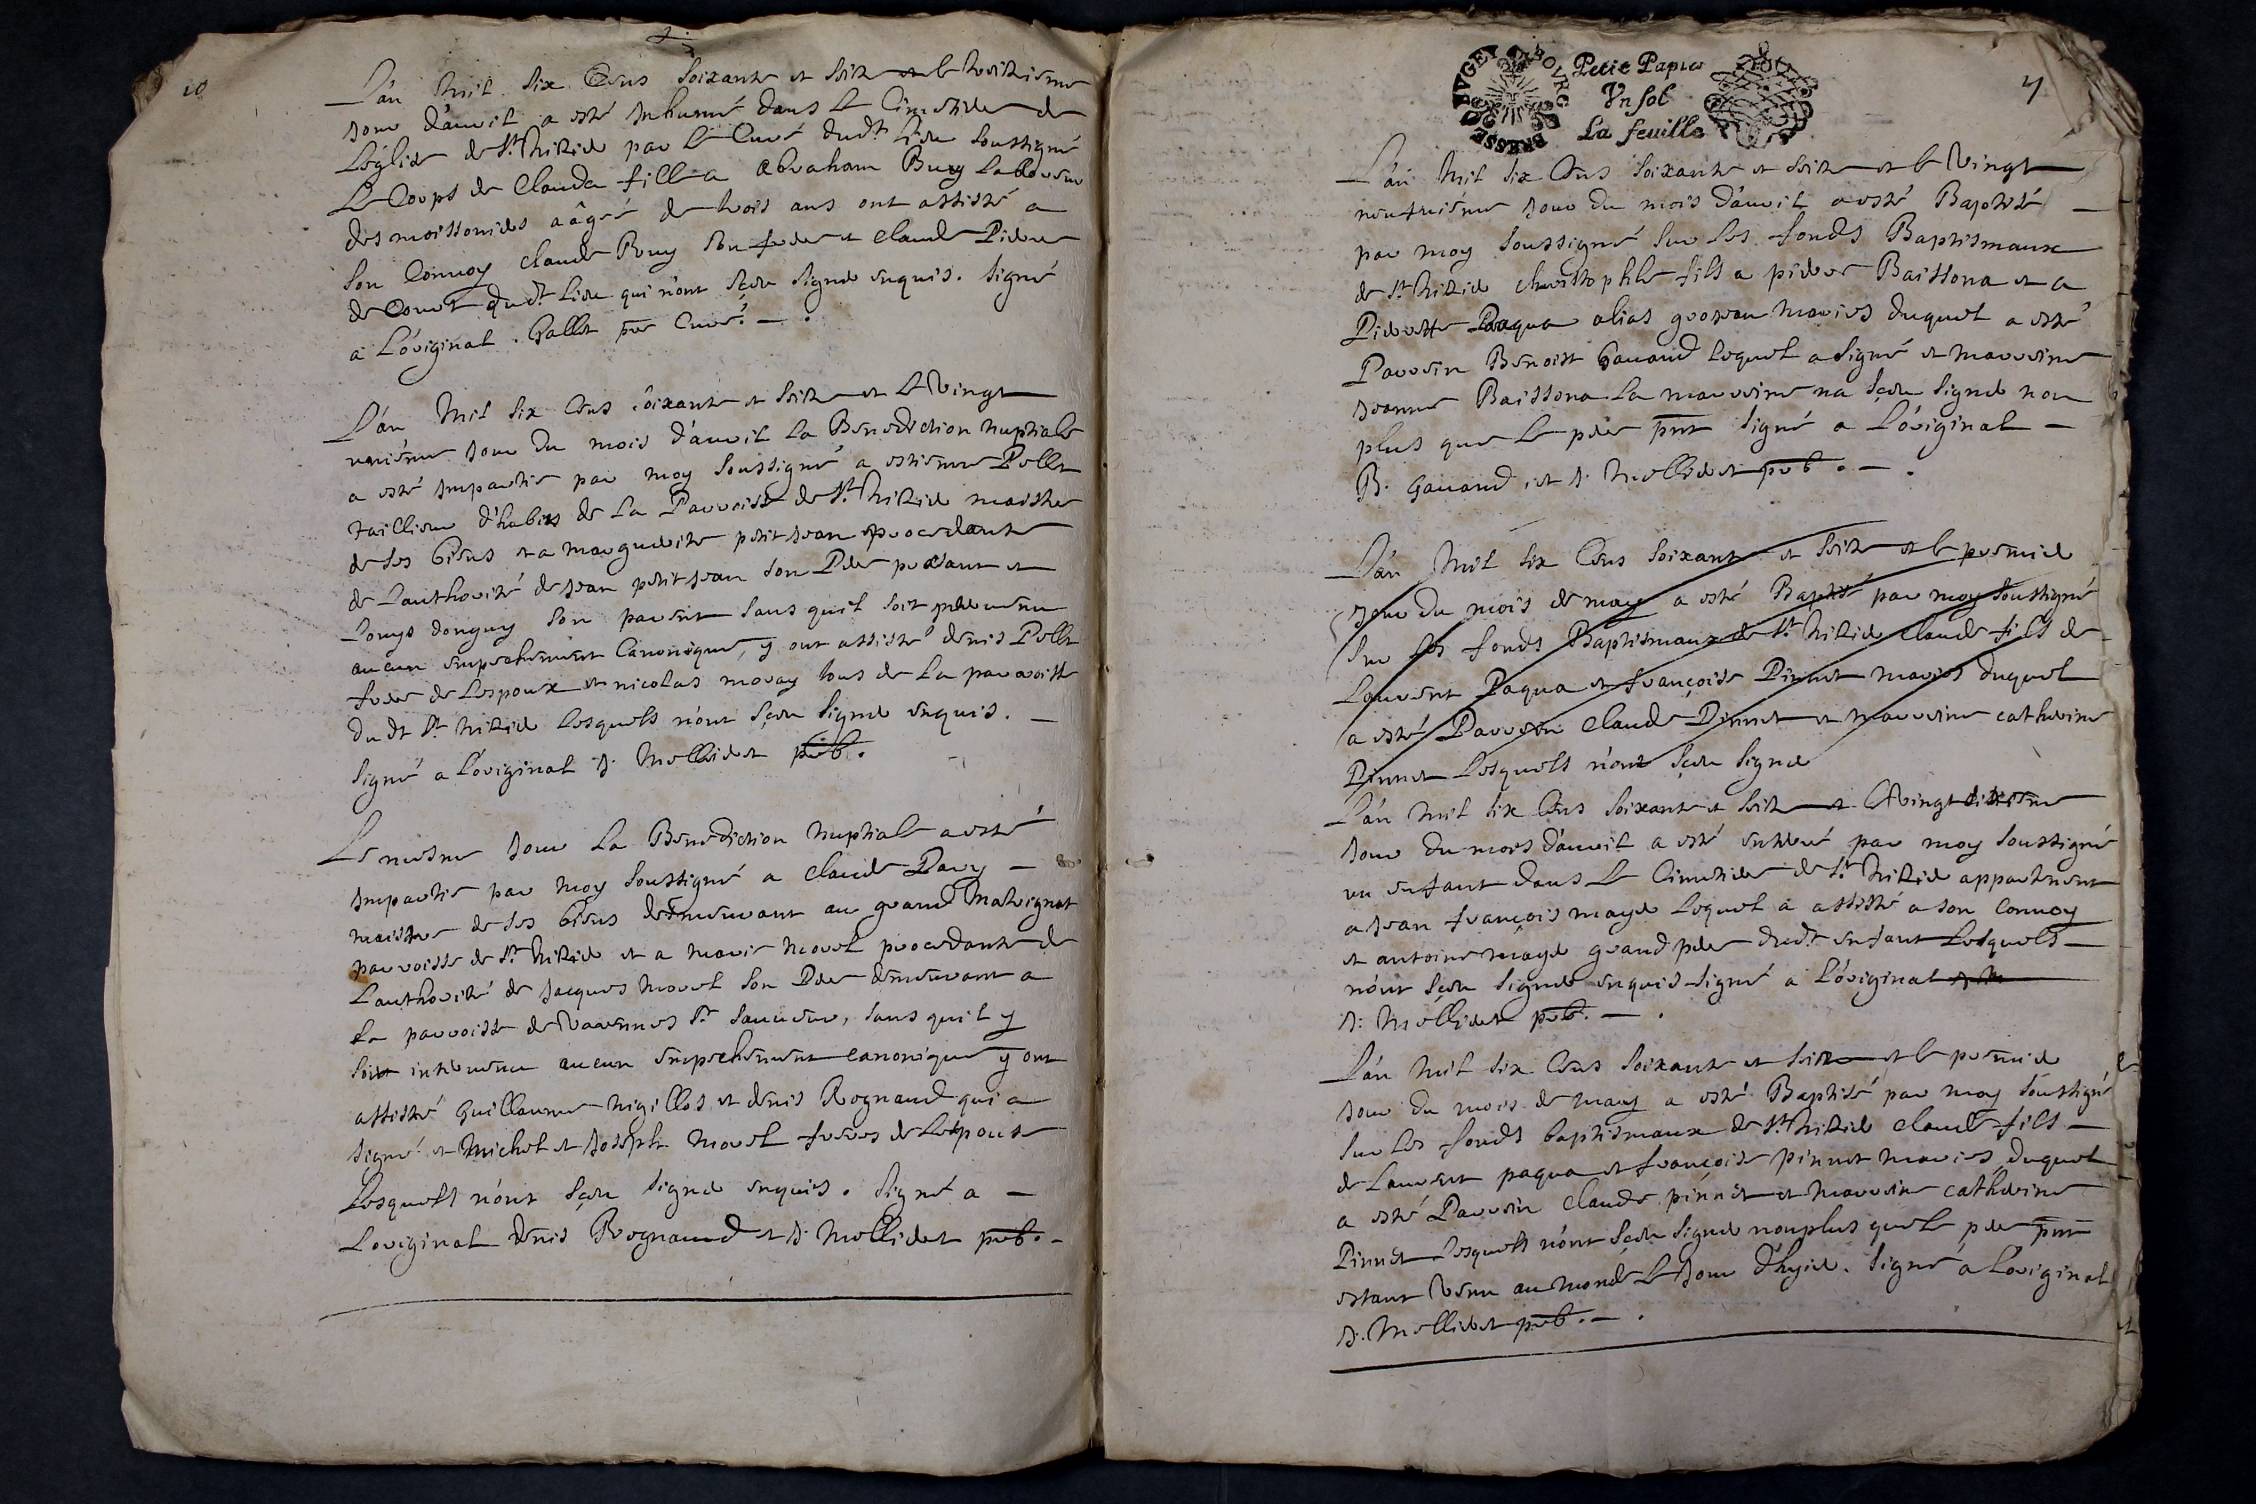 L'an Mil Six Cens Soixante et Seize et le huictiesme
Jour d'auril a esté Inhumé dans Le Cimetiere de
Leglise de St Nizied par Le Curé dudt Lieu Soussigné
Le Corps de Claude fille a Abraham Buy Laboureur
des moissoniers aâgé de trois ans ont assisté a
Son Conuoy Claude Buy Son frere et Claude Pierre
de dudt Lieu qui n'ont Sçeu Signer enquis. Signé
a L'original. Gallet pre Curé. — .
L'an Mil Six Cens Soixante et Seize et Le Vingt
uniesme Jour Du mois d'auril La Benediction Nuptiale
a esté Impartie par moy Soussigné a estienne Pellet
taillieur d'habits de La Parroisse de St Nizied maistre
de Ses biens et a Marguerite petit Jean procedante
de Lauthorité de Jean petit Jean Son Pere present et
Louys donguy Son parent Sans quil Soit preuenu
aucun empechement Canonique, y ont assisté denis Pellet
frere de Lespoux et nicolas moray tous de La parroisse
dudt St Nizied Lesquels n'ont Sçeu Signer enquis. —
Signé a L'original J. Mellieret pbt.
Le mesme Jour La Benediction Nuptiale a esté
Impartie par moy Soussigné a Claude Pary —
maistre de Ses biens demeurant au grand Malvignat
parroisse de St Nizied et a Marie Morel procedante de
Lauthorité de Jacques Morel Son Pere demeurant a
La parroisse de Varennes St Sauueur, Sans quil y
Soit interuenu aucun empechement canonique y ont
assisté Guillaume nigillos et denis Rognaud qui a
Signé et Michel et Joseph Morel freres de Lespouse
Lesquels n'ont Sçeu Signer enquis. Signé a —
Loriginal denis Rognaud et J. Mellieret pbt. —
BOVRG BRESSE BVGEY
Petit Papier
Vn sol
La feuille
L'an Mil Six Cens Soixante et Seize et le Vingt
neufuiesme Jour du mois d'auril a esté Baptisé —
par moy Soussigné Sur Les fonds Baptismaux
de St Nizied christophle fils a pierre Baissona et a
Pierrette Paqua alias grosjean Maries duquel a esté
Parrein Benoist Gauand Lequel a Signé et Marreine
Jeanne Baissona La marreine na Sçeu Signer non
plus que Le pere pnt Signé a L'original —
B. Gauand, et J. Mellieret pbt. — .
L'an Mil Six Cens Soixante et Seize et le premied
Jour du mois de may a esté Baptisé par moy Soussigné
Sur Les fonds Baptismaux de St Nizied Claude fils de
Laurent Paqua et françoise Pinnet Maries duquel
a esté Parrein Claude Pinnet et marreine catherine
Pinnet Lesquels n'ont Sçeu Signer
L'an Mil Six Cens Soixante et Seize et Vingt
Jour du mois d'auril a esté enterré par moy Soussigné
un enfant dans Le Cimetiere de St Nizied appartenent
a Jean françois mayd Lequel a assisté a Son Conuoy
et antoine mayd grand pere dudt enfant Lesquels —
n'ont Sçeu Signer enquis Signé a L'original
J. Mellieret pbt. — .
L'an Mil Six Cens Soixante et Seize et le premied
Jour du mois de may a esté Baptisé par moy Soussigné
Sur Les fonds baptismaux de St Nizied Claude fils —
de Laurent paqua et françoise pinnet Maries, duquel
a esté Parrein Claude pinnet et Marreine catherine
Pinnet Lesquels n'ont Sçeu Signer nonplus que Le pere pnt
estant Venu au monde Le Jour d'hyer. Signé a L'original
J. Mellieret pbt. — .